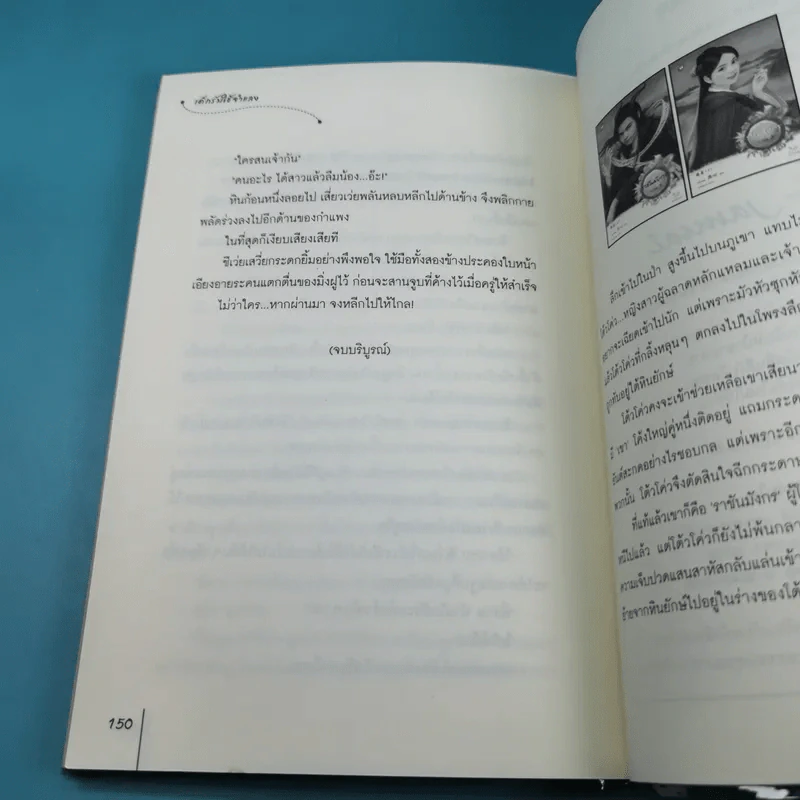 "ใครสนเจ้ากัน"
"คนอะไร ได้สาวแล้วลืมน้อง...อ๊ะ!"
หินก้อนหนึ่งลอยไป เสี่ยวเว่ยพลันหลบหลีกไปด้านข้าง จึงพลิกกาย
พลัดร่วงลงไปอีกด้านของกำแพง
ในที่สุดก็เงียบเสียงเสียที
ชีเว่ยเสวี่ยกระตกยิ้มอย่างพึงพอใจ ใช้มือทั้งสองข้างประคองใบหน้า
เอียงอายระคนแตกตื่นของมิ่งฝูไว้ ก่อนจะสานจูบที่ค้างไว้เมื่อครู่ให้สำเร็จ
ไม่ว่าใคร...หากผ่านมา จงหลีกไปให้ไกล!
(จบบริบูรณ์)
150
ลึกเข้าไปในป่า สูงขึ้นไปบนภูเขา แทบไ
โต้วโค่ว...หญิงสาวผู้ฉลาดหลักแหลมและเจ้า
จะเฉียดเข้าไปนัก แต่เพราะมัวหัวซุกหัว
แล้วโต้วโค่วที่กลิ้งหลุนๆ ตกลงไปในโพรงลึก
ถูกทับอยู่ใต้หินยักษ์
โต้วโค่วคงจะเข้าช่วยเหลือเขาเสียนา
มี 'เขา' โค้งใหญ่คู่หนึ่งติดอยู่ แถมกระด
ยันต์สะกดอย่างไรชอบกล แต่เพราะอีก
พวกนั้น โต้วโค่วจึงตัดสินใจฉีกกระดาษ
ที่แท้แล้วเขาก็คือ 'ราชันมังกร' ผู้
หนีไปแล้ว แต่โต้วโค่วก็ยังไม่พ้นกลา
ความเจ็บปวดแสนสาหัสกลับแล่นเข้า
ย้ายจากหินยักษ์ไปอยู่ในร่างของโต้